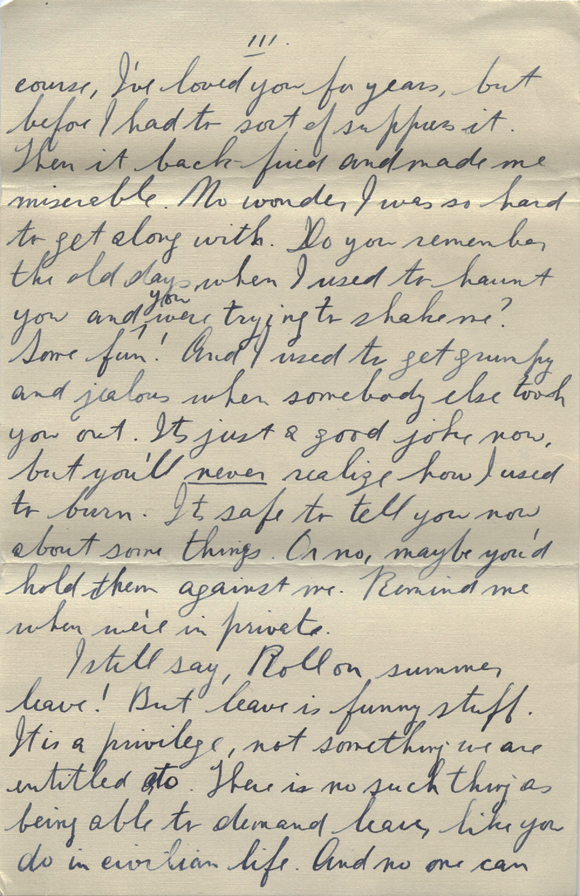 III.
course, I've loved you for years, but
before I had to sort of suppress it.
Then it back-fired and made me
miserable. No wonder I was so hard
to get along with. Do you remember
the old days, when I used to haunt
you and you were trying to shake me?
Some fun! And I used to get grumpy
and jealous when somebody else took
you out. Its just a good joke now,
but you'll never realize how I used
to burn. Its safe to tell you now
about some things. Or no, maybe you'd
hold them against me. Remind me
when we're in private.
I still say, Roll on summer
leave! But leave is funny stuff.
It is a privilege, not something we are
entitled to. There is no such thing as
being able to demand leave, like you
do in civilian life. And no one can